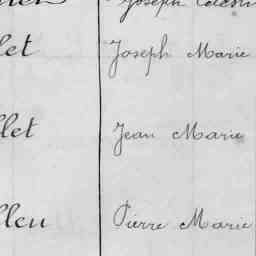 Joseph
let Joseph Marie
llet Jean Marie
lleu Pierre Marie